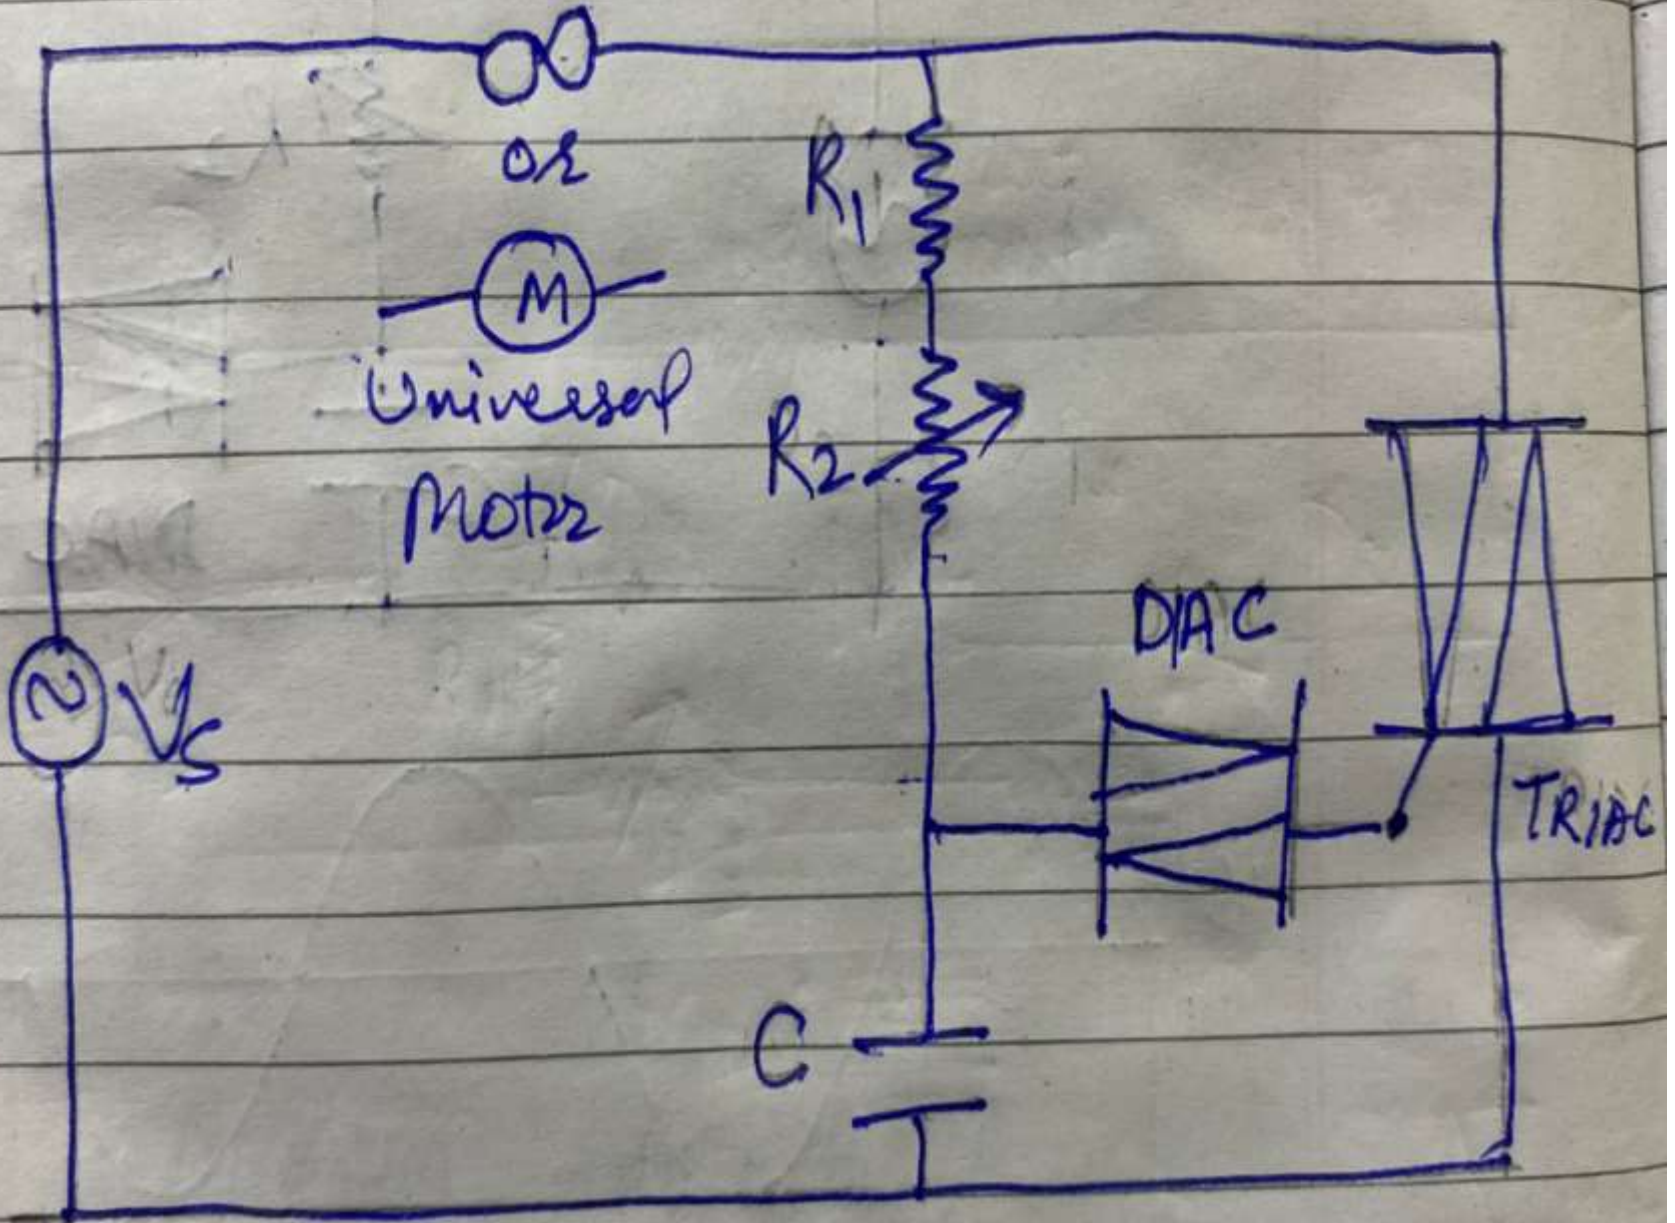 or
M
Universal
Motor
R1
R2
Vs
DIAC
TRIAC
C